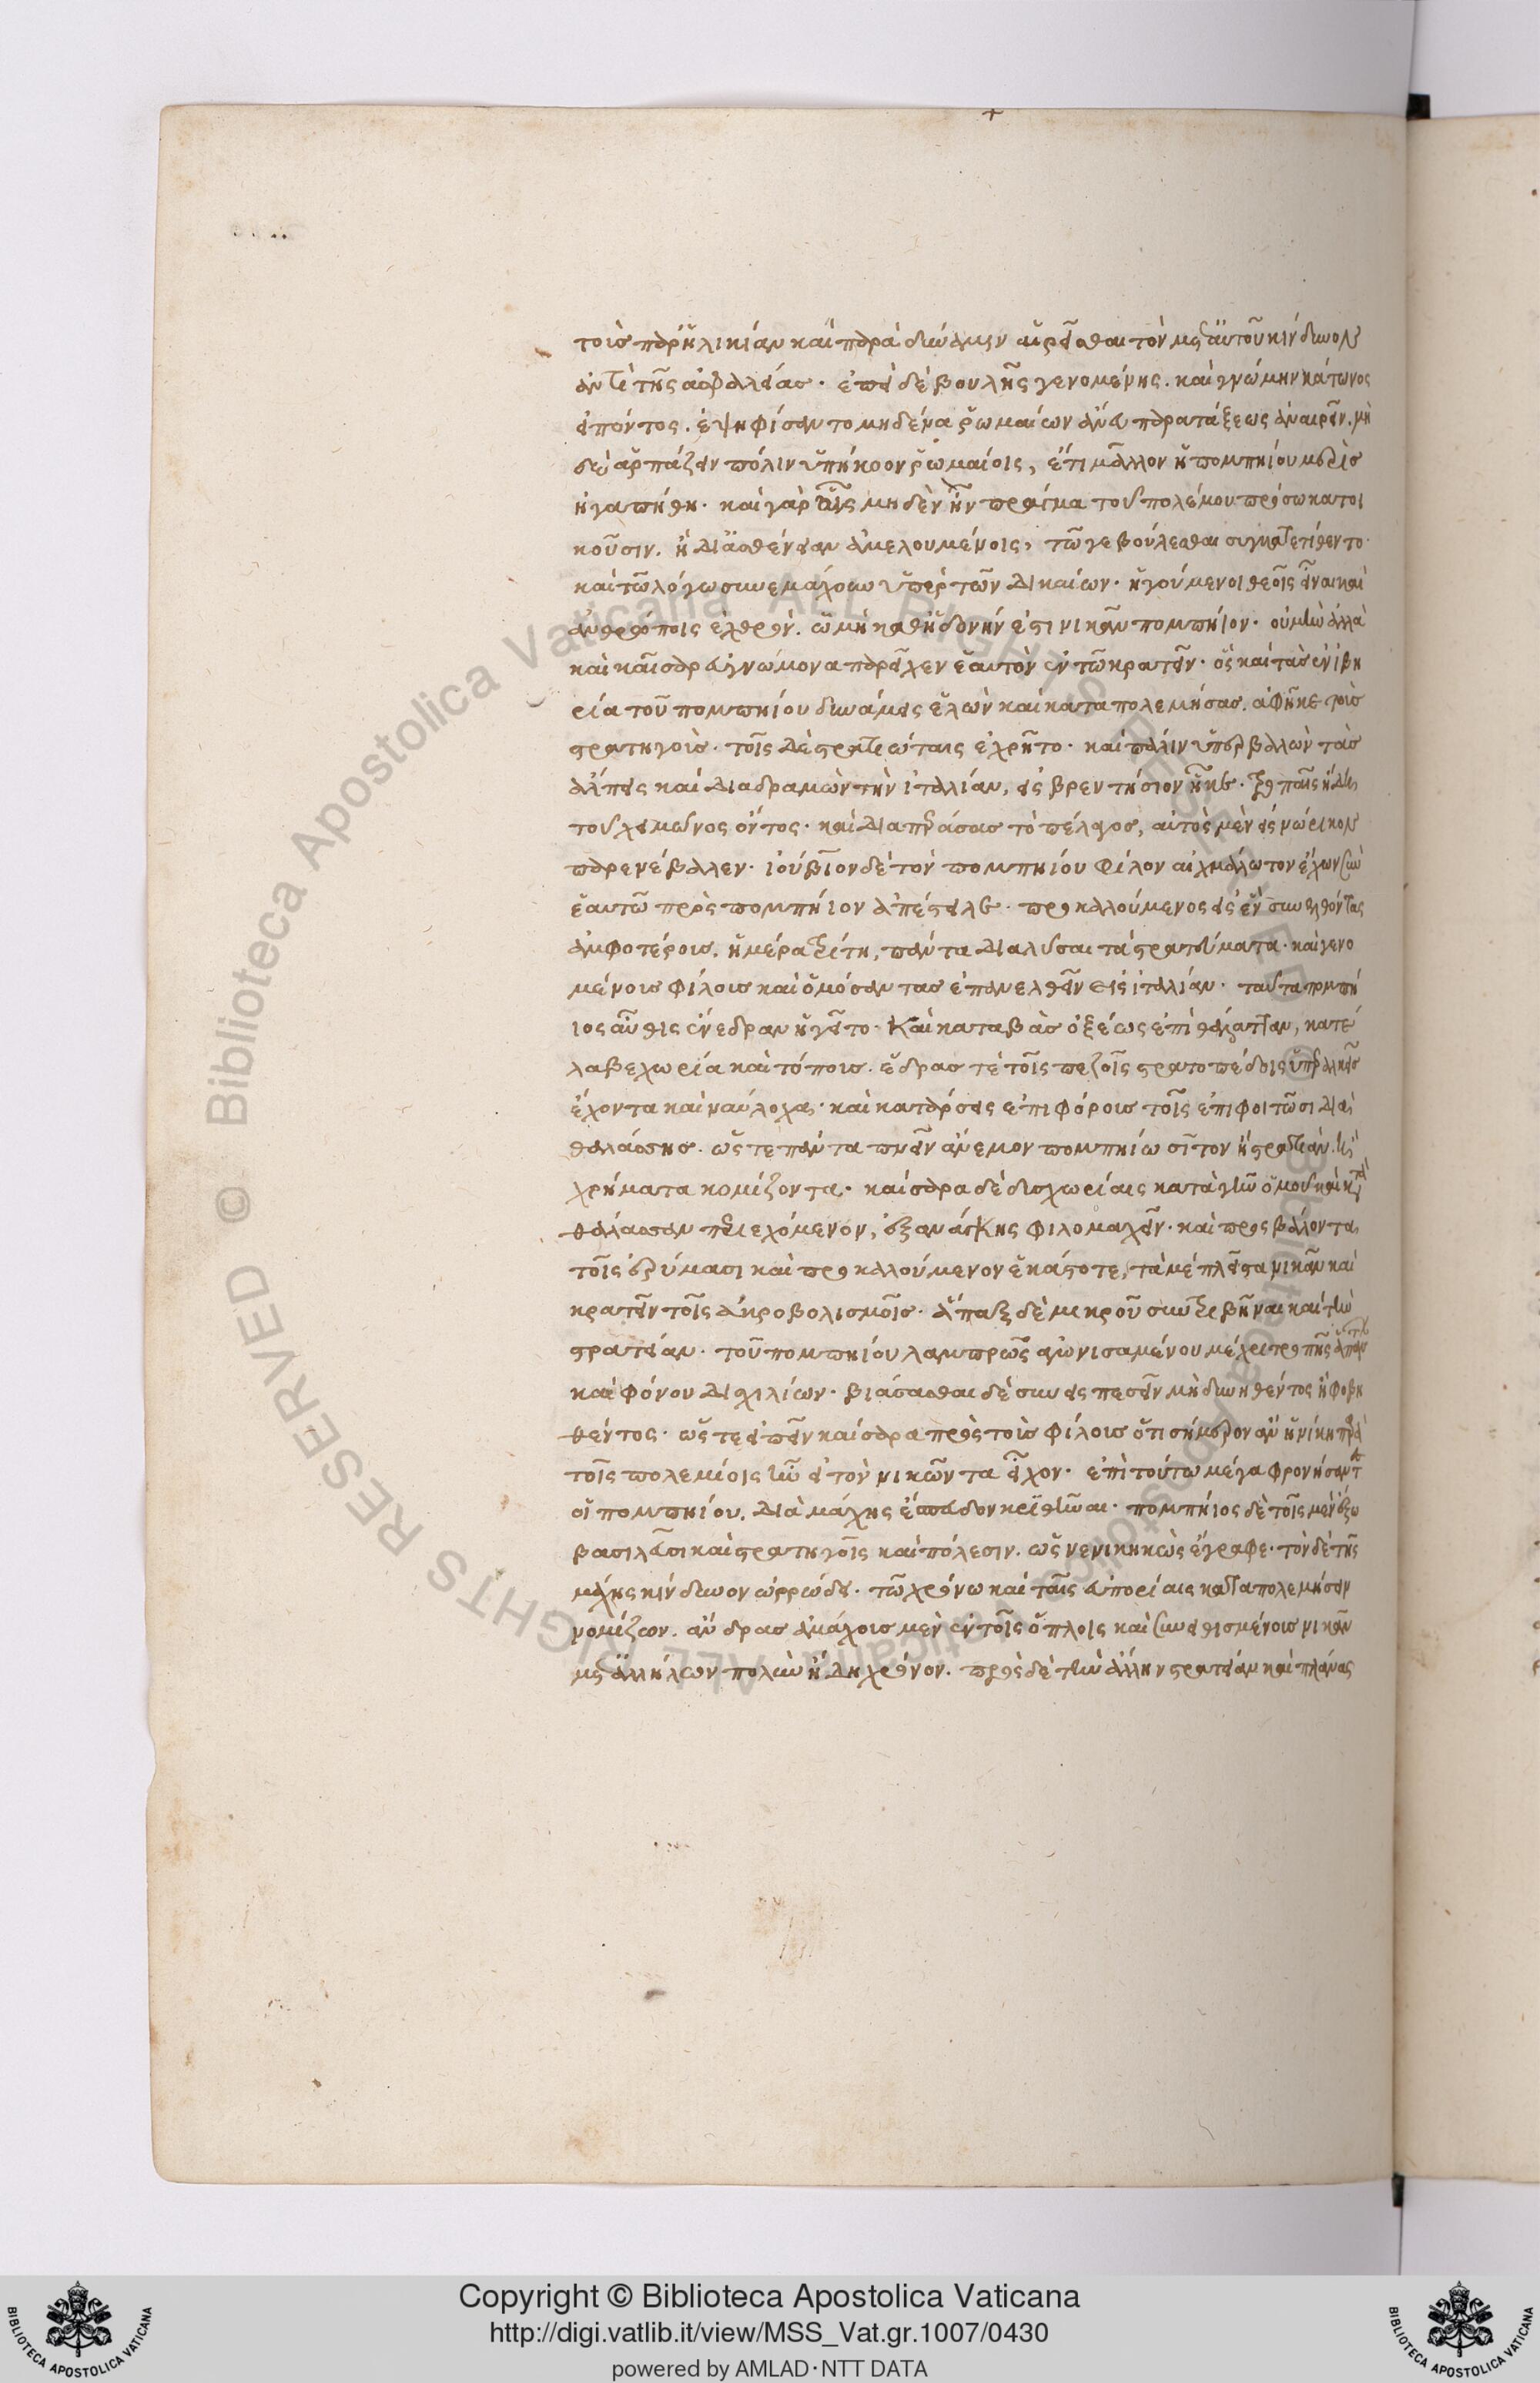 τοὺς παρ' ἡλικίαν καὶ παρὰ δύναμιν αἱρεῖσθαι τὸν μετ' αὐτοῦ κίνδυνον
ἀντὶ τῆς ἀσφαλείας. ἐπεὶ δὲ βουλῆς γενομένης. καὶ γνώμην κάτωνος
εἰπόντος. ἐψηφίσαντο μηδένα ῥωμαίων ἄνευ παρατάξεως ἀναιρεῖν. μὴ
δὲ ἁρπάζειν πόλιν ὑπήκοον ῥωμαίοις, ἔτι μᾶλλον ἡ πομπηίου μερὶς
ἠγαπήθη. καὶ γὰρ οἷς μηδὲν ἦν πρᾶγμα τοῦ πολέμου πρόσω κατοι
κοῦσιν. ἢ δι' ἀσθένειαν ἀμελουμένοις, τῷ γε βούλεσθαι συγκατετίθεντο.
καὶ τῷ λόγῳ συνεμάχουν ὑπὲρ τῶν δικαίων. ἡγούμενοι θεοῖς εἶναι καὶ
ἀνθρώποις ἐχθρὸν. ᾧ μὴ καθ' ἡδονήν ἐστι νικᾶν πομπήιον. οὐ μὴν ἀλλὰ
καὶ καῖσαρ εὐγνώμονα παρεῖχεν ἑαυτὸν ἐν τῷ κρατεῖν. ὃς καὶ τὰς ἐν ἰβη
ρίᾳ τοῦ πομπηίου δυνάμεις ἑλὼν καὶ καταπολεμήσας. ἀφῆκε τοὺς
στρατηγοὺς. τοῖς δὲ στρατιώταις ἐχρῆτο. καὶ πάλιν ὑπερβαλὼν τὰς
ἄλπεις καὶ διαδραμὼν τὴν ἰταλίαν, εἰς βρεντήσιον ἧκεν. ἐν τροπαῖς ἤδη
τοῦ χειμῶνος ὄντος. καὶ διαπεράσας τὸ πέλαγος, αὐτὸς μὲν εἰς νώρικον
παρενέβαλεν. ἰούβιον δὲ τὸν πομπηίου φίλον αἰχμάλωτον ἔχων σὺν
ἑαυτῷ πρὸς πομπήιον ἀπέστειλε. προκαλούμενος εἰς ἓν συνελθόντας
ἀμφοτέρους. ἡμέρᾳ τρίτῃ, πάντα διαλῦσαι τὰ στρατεύματα. καὶ γενο
μένους φίλους καὶ ὀμόσαντας ἐπανελθεῖν εἰς ἰταλίαν. ταῦτα πομπή
ιος αὖθις ἐνέδραν ἡγεῖτο. Καὶ καταβὰς ὀξέως ἐπὶ θάλατταν, κατέ
λαβε χωρία καὶ τόπους. ἕδρας τε τοῖς πεζοῖς στρατοπέδοις ὑπεραλκεῖς
ἔχοντα καὶ ναύλοχα. καὶ κατάρσεις ἐπιφόρους τοῖς ἐπιφοιτῶσι διὰ
θαλάσσης. ὥστε πάντα πνεῖν ἄνεμον πομπηίῳ σῖτον ἢ στρατιὰν. ἢ
χρήματα κομίζοντα. καίσαρα δὲ δυσχωρίαις κατὰ γῆν ὁμοῦ καὶ κατὰ
θάλασσαν περιεχόμενον, ἐξ ἀνάγκης φιλομαχεῖν. καὶ προσβάλοντα
τοῖς ἐρύμασι καὶ προκαλούμενον ἑκάστοτε, τὰ μὲ πλεῖστα νικᾶν καὶ
κρατεῖν τοῖς ἀκροβολισμοῖς. ἅπαξ δὲ μικροῦ συντριβῆναι καὶ τὴν
στρατείαν. τοῦ πομπηίου λαμπρῶς ἀγωνισαμένου μέχρι τροπῆς ἁπάντων
καὶ φόνου δισχιλίων. βιάσασθαι δὲ συνεισπεσεῖν μὴ δυνηθέντος ἢ φοβη
θέντος. ὥστε εἰπεῖν καίσαρα πρὸς τοὺς φίλους ὅτι σήμερον ἂν ἡ νίκη παρὰ
τοῖς πολεμίοις ἦν εἰ τὸν νικῶντα εἶχον. ἐπὶ τούτῳ μέγα φρονήσαντες
οἱ πομπηίου. διὰ μάχης ἔσπευδον κριθῆναι. πομπήιος δὲ τοῖς μὲν ἔξω
βασιλεῦσι καὶ στρατηγοῖς καὶ πόλεσιν. ὡς νενικηκὼς ἔγραφε. τὸν δὲ τῆς
μάχης κίνδυνον ὠρρώδει. τῷ χρόνῳ καὶ ταῖς ἀπορίαις καταπολεμήσειν
νομίζων. ἄνδρας ἀμάχους μὲν ἐν τοῖς ὅπλοις καὶ συνειθισμένους νικᾶν
μετ' ἀλλήλων πολὺν ἤδη χρόνον. πρὸς δὲ τὴν ἄλλην στρατείαν καὶ πλάνας